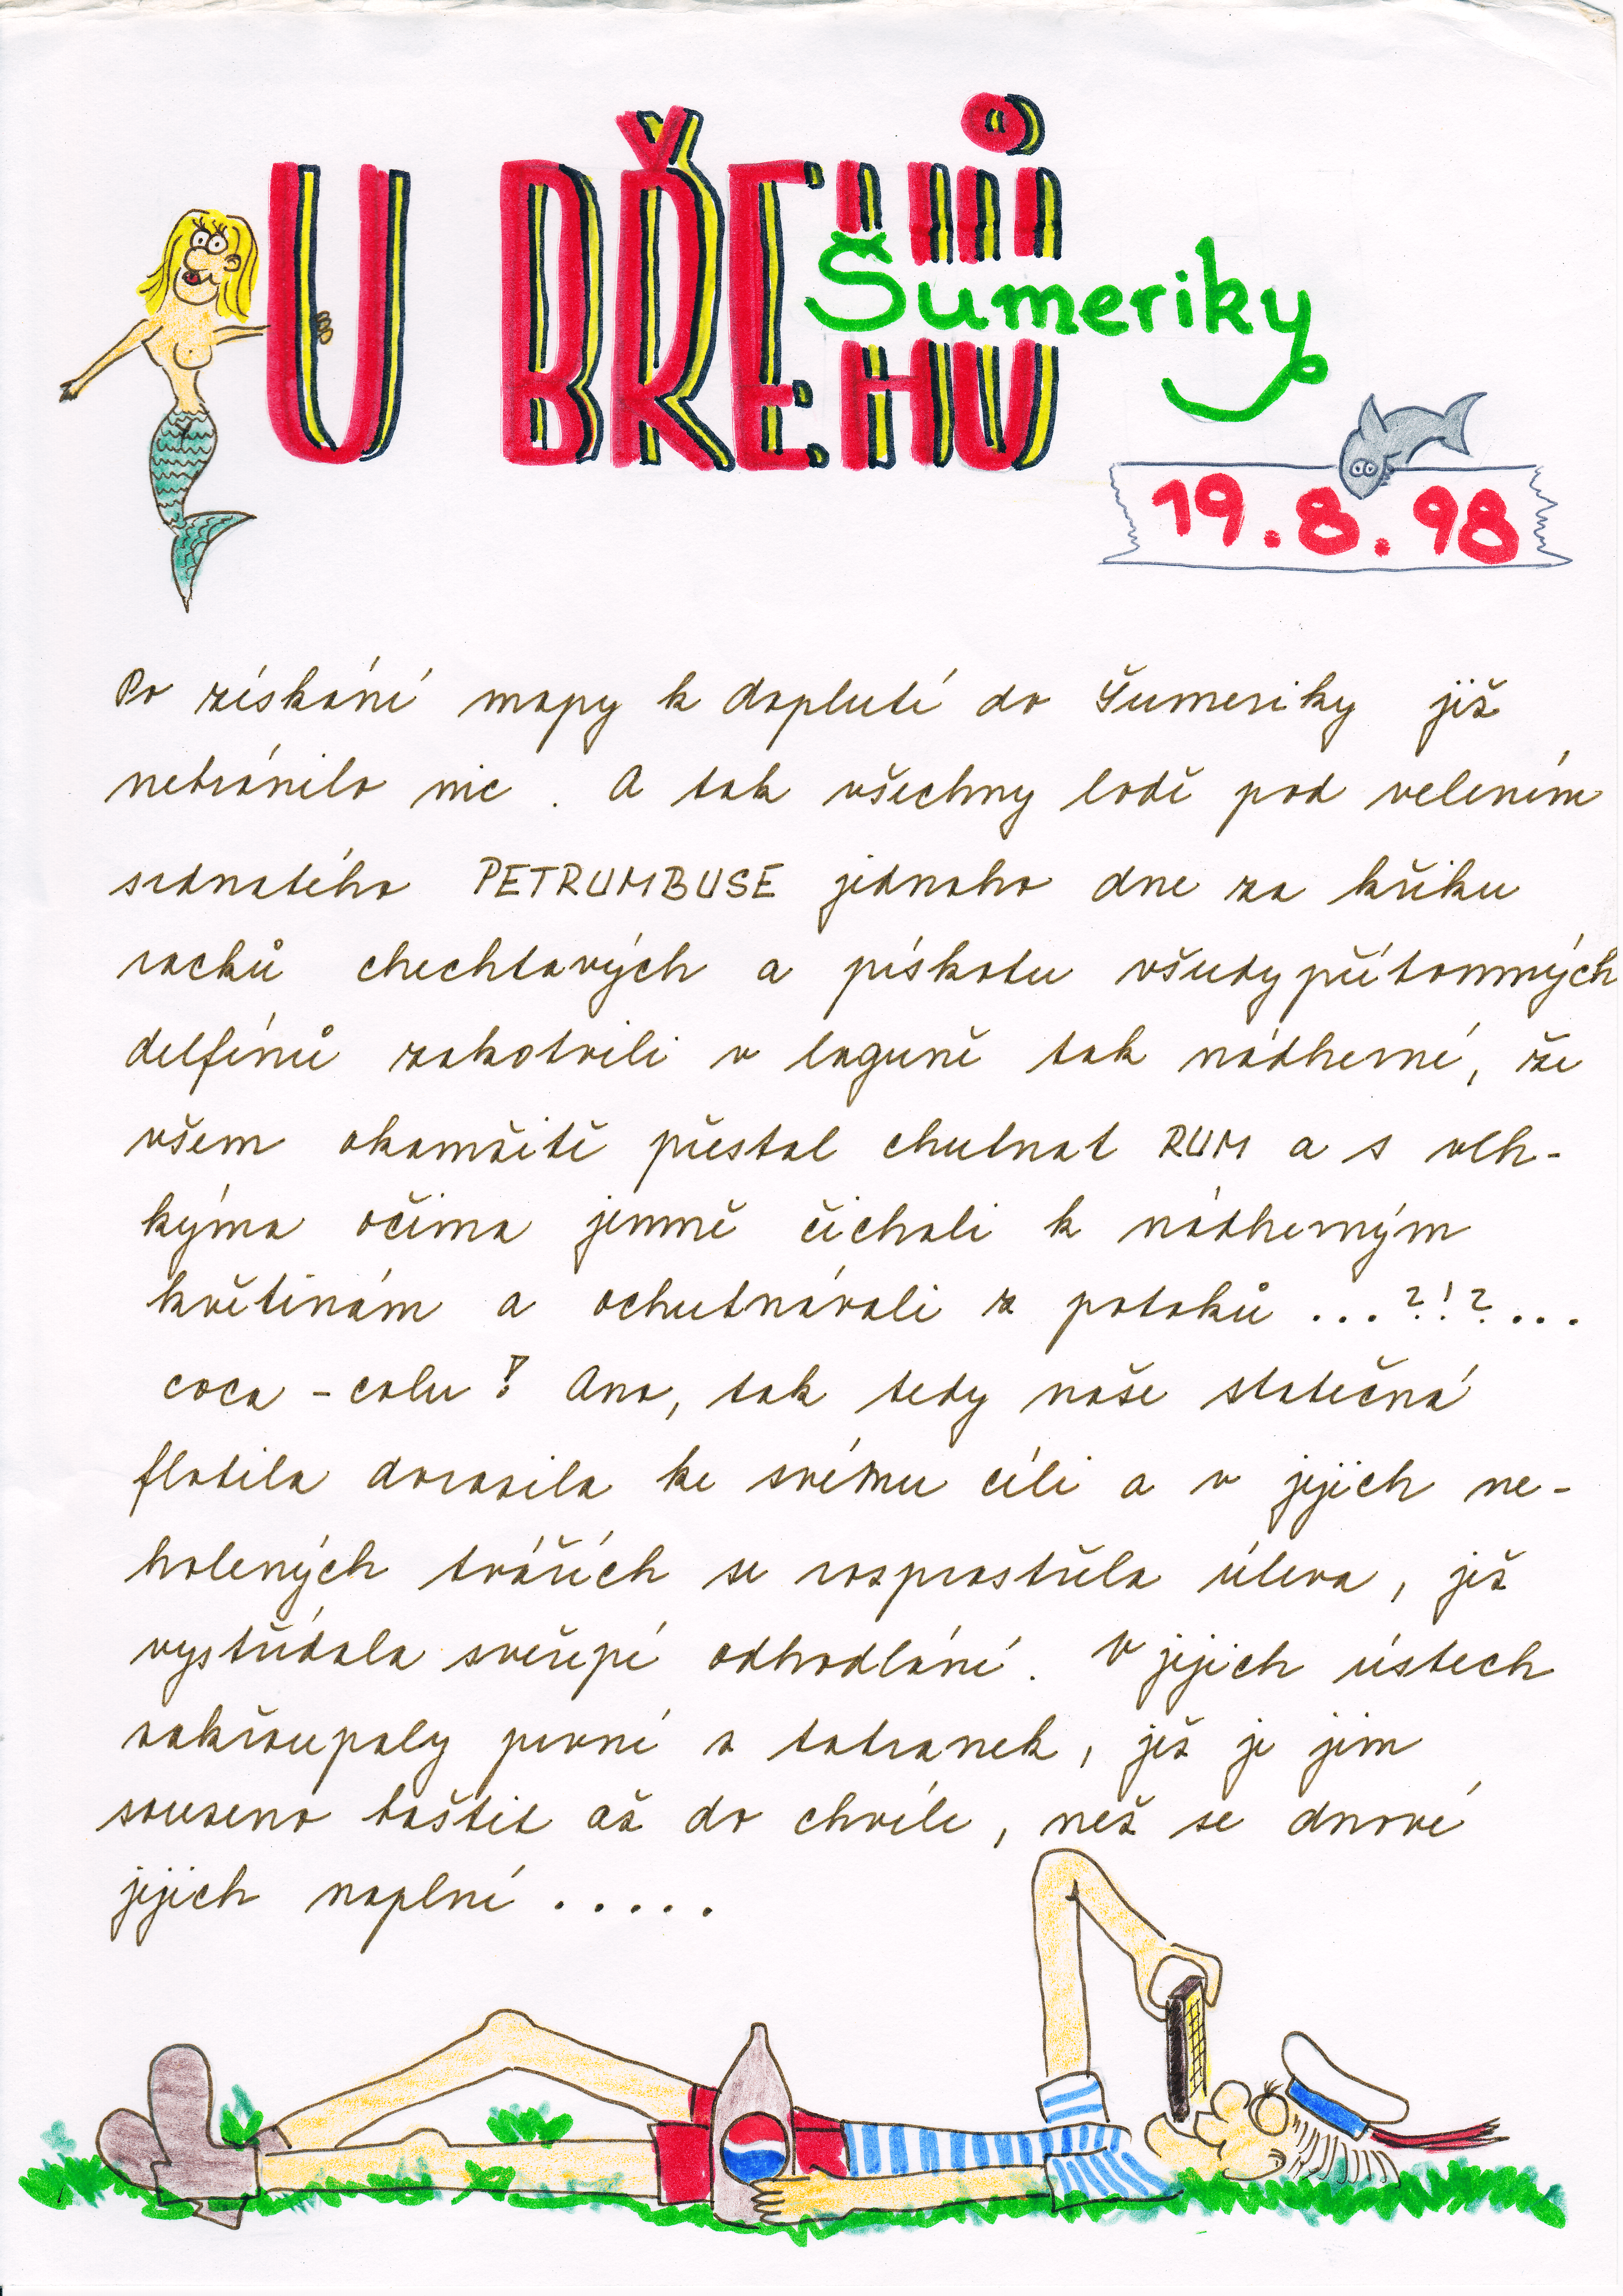 U BŘEHŮ
Šumeriky
BŘEHU
19.8.98
Po získání mapy k doplutí do Šumeriky již
nebránilo nic . A tak všechny lodě pod velením
srdnatého PETRUMBUSE jednoho dne za křiku
racků chechtavých a pískotu všudypřítomných
delfínů zakotvili v laguně tak nádherné, že
všem okamžitě přestal chutnat RUM a s vlh-
kýma očima jemně čichali k nádherným
květinám a ochutnávali z potoků ...?!?...
coca - colu! Ano, tak tedy naše statečná
flotila dorazila ke svému cíli a v jejich ne-
holených tvářích se rozprostřela úleva, jež
vystřídala sveřepé odhodlání. V jejich ústech
zakřoupaly první z tatranek, jež je jim
souzeno baštit až do chvíle, než se dnové
jejich naplní .....